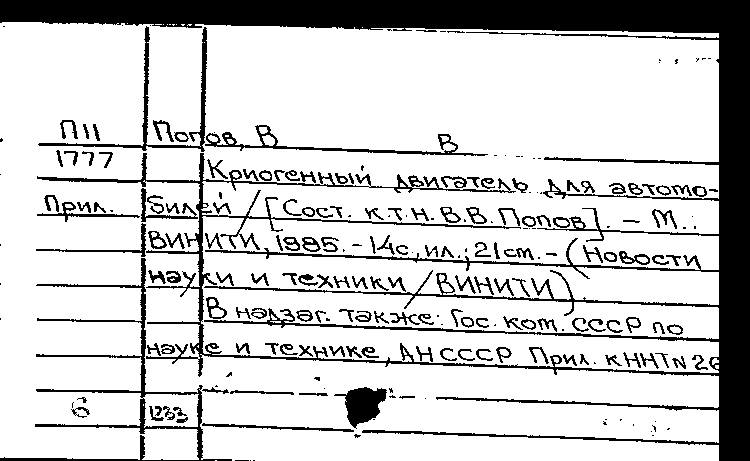 П11 Попов, В В
1777 Криогенный двигатель для автомо-
Прил. билей / [Сост. к.т.н. В.В. Попов]. - М.:
ВИНИТИ, 1985. - 14с, ил.; 21 cm. - (Новости
науки и техники / ВИНИТИ).
В надзаг. также: Гос. ком. СССР по
науке и технике, АН СССР Прил. к ННТ N 26
6 1233